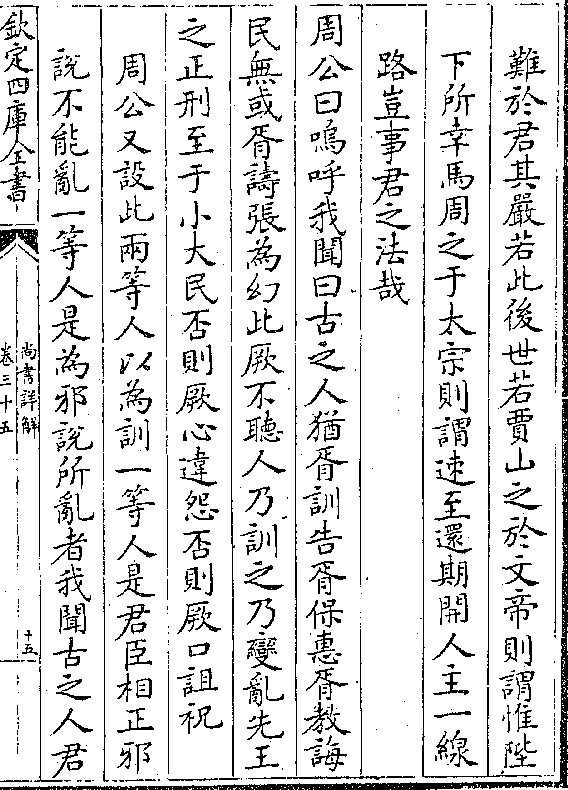 難於君其嚴若此後世若賈山之於文帝則謂惟陛
下所幸馬周之于太宗則謂速至還期開人主一線
路豈事君之法哉
周公曰嗚呼我聞曰古之人猶胥訓告胥保惠胥教誨
民無或胥譸張為幻此厥不聽人乃訓之乃變亂先王
之正刑至于小大民否則厥心違怨否則厥口詛祝
周公又設此兩等人以為訓一等人是君臣相正邪
說不能亂一等人是為邪說所亂者我聞古之人君
欽定四庫全書
尚書詳解
卷三十五
十五